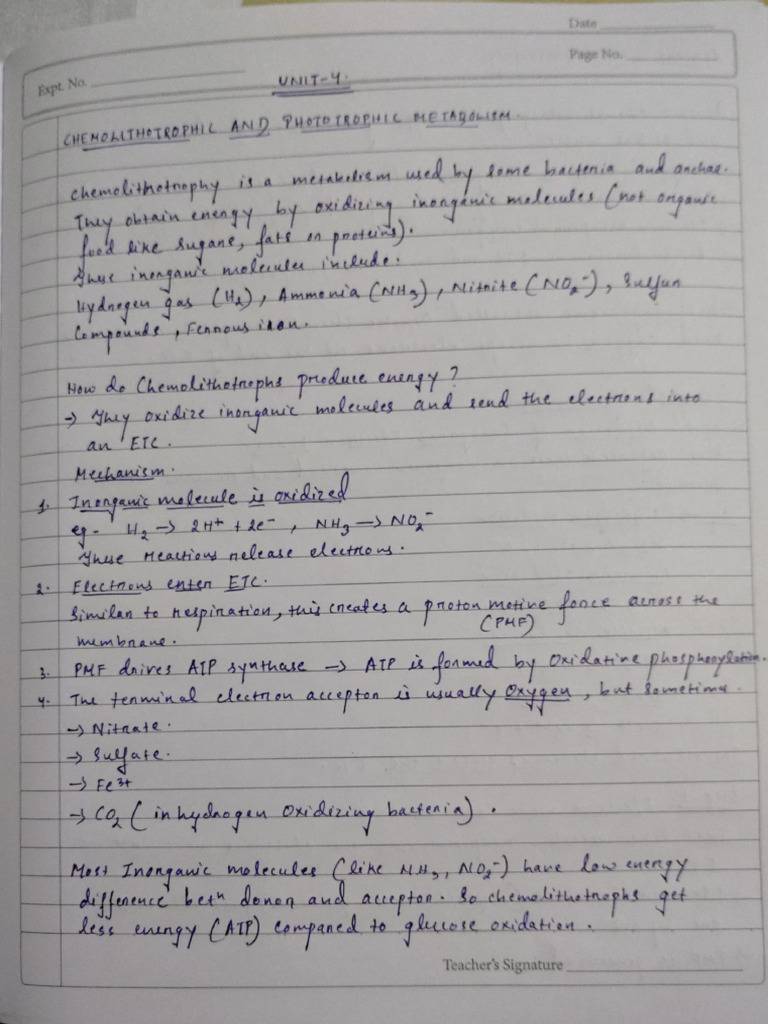 Date
Page No.
Expt. No.
UNIT-4.
CHEMOLITHOTROPHIC AND PHOTOTROPHIC METABOLISM.
Chemolithotrophy is a metabolism used by some bacteria and archae.
They obtain energy by oxidizing inorganic molecules (not organic
food like sugars, fats or proteins).
These inorganic molecules include:
Hydrogen gas (H₂), Ammonia (NH₃), Nitrite (NO₂⁻), Sulfur
Compounds, Ferrous iron.
How do Chemolithotrophs produce energy?
→ They oxidize inorganic molecules and send the electrons into
an ETC.
Mechanism.
1. Inorganic molecule is oxidized
eg- H₂ → 2H⁺ + 2e⁻, NH₃ → NO₂⁻
These reactions release electrons.
2. Electrons enter ETC.
Similar to respiration, this creates a proton motive force across the
(PMF)
membrane.
3. PMF drives ATP synthase → ATP is formed by Oxidative phosphorylation.
4. The terminal electron acceptor is usually Oxygen, but sometimes.
→ Nitrate.
→ Sulfate.
→ Fe³⁺
→ CO₂ (in hydrogen Oxidizing bacteria).
Most Inorganic molecules (like NH₃, NO₂⁻) have low energy
difference betⁿ donor and acceptor. So chemolithotrophs get
less energy (ATP) compared to glucose oxidation.
Teacher's Signature